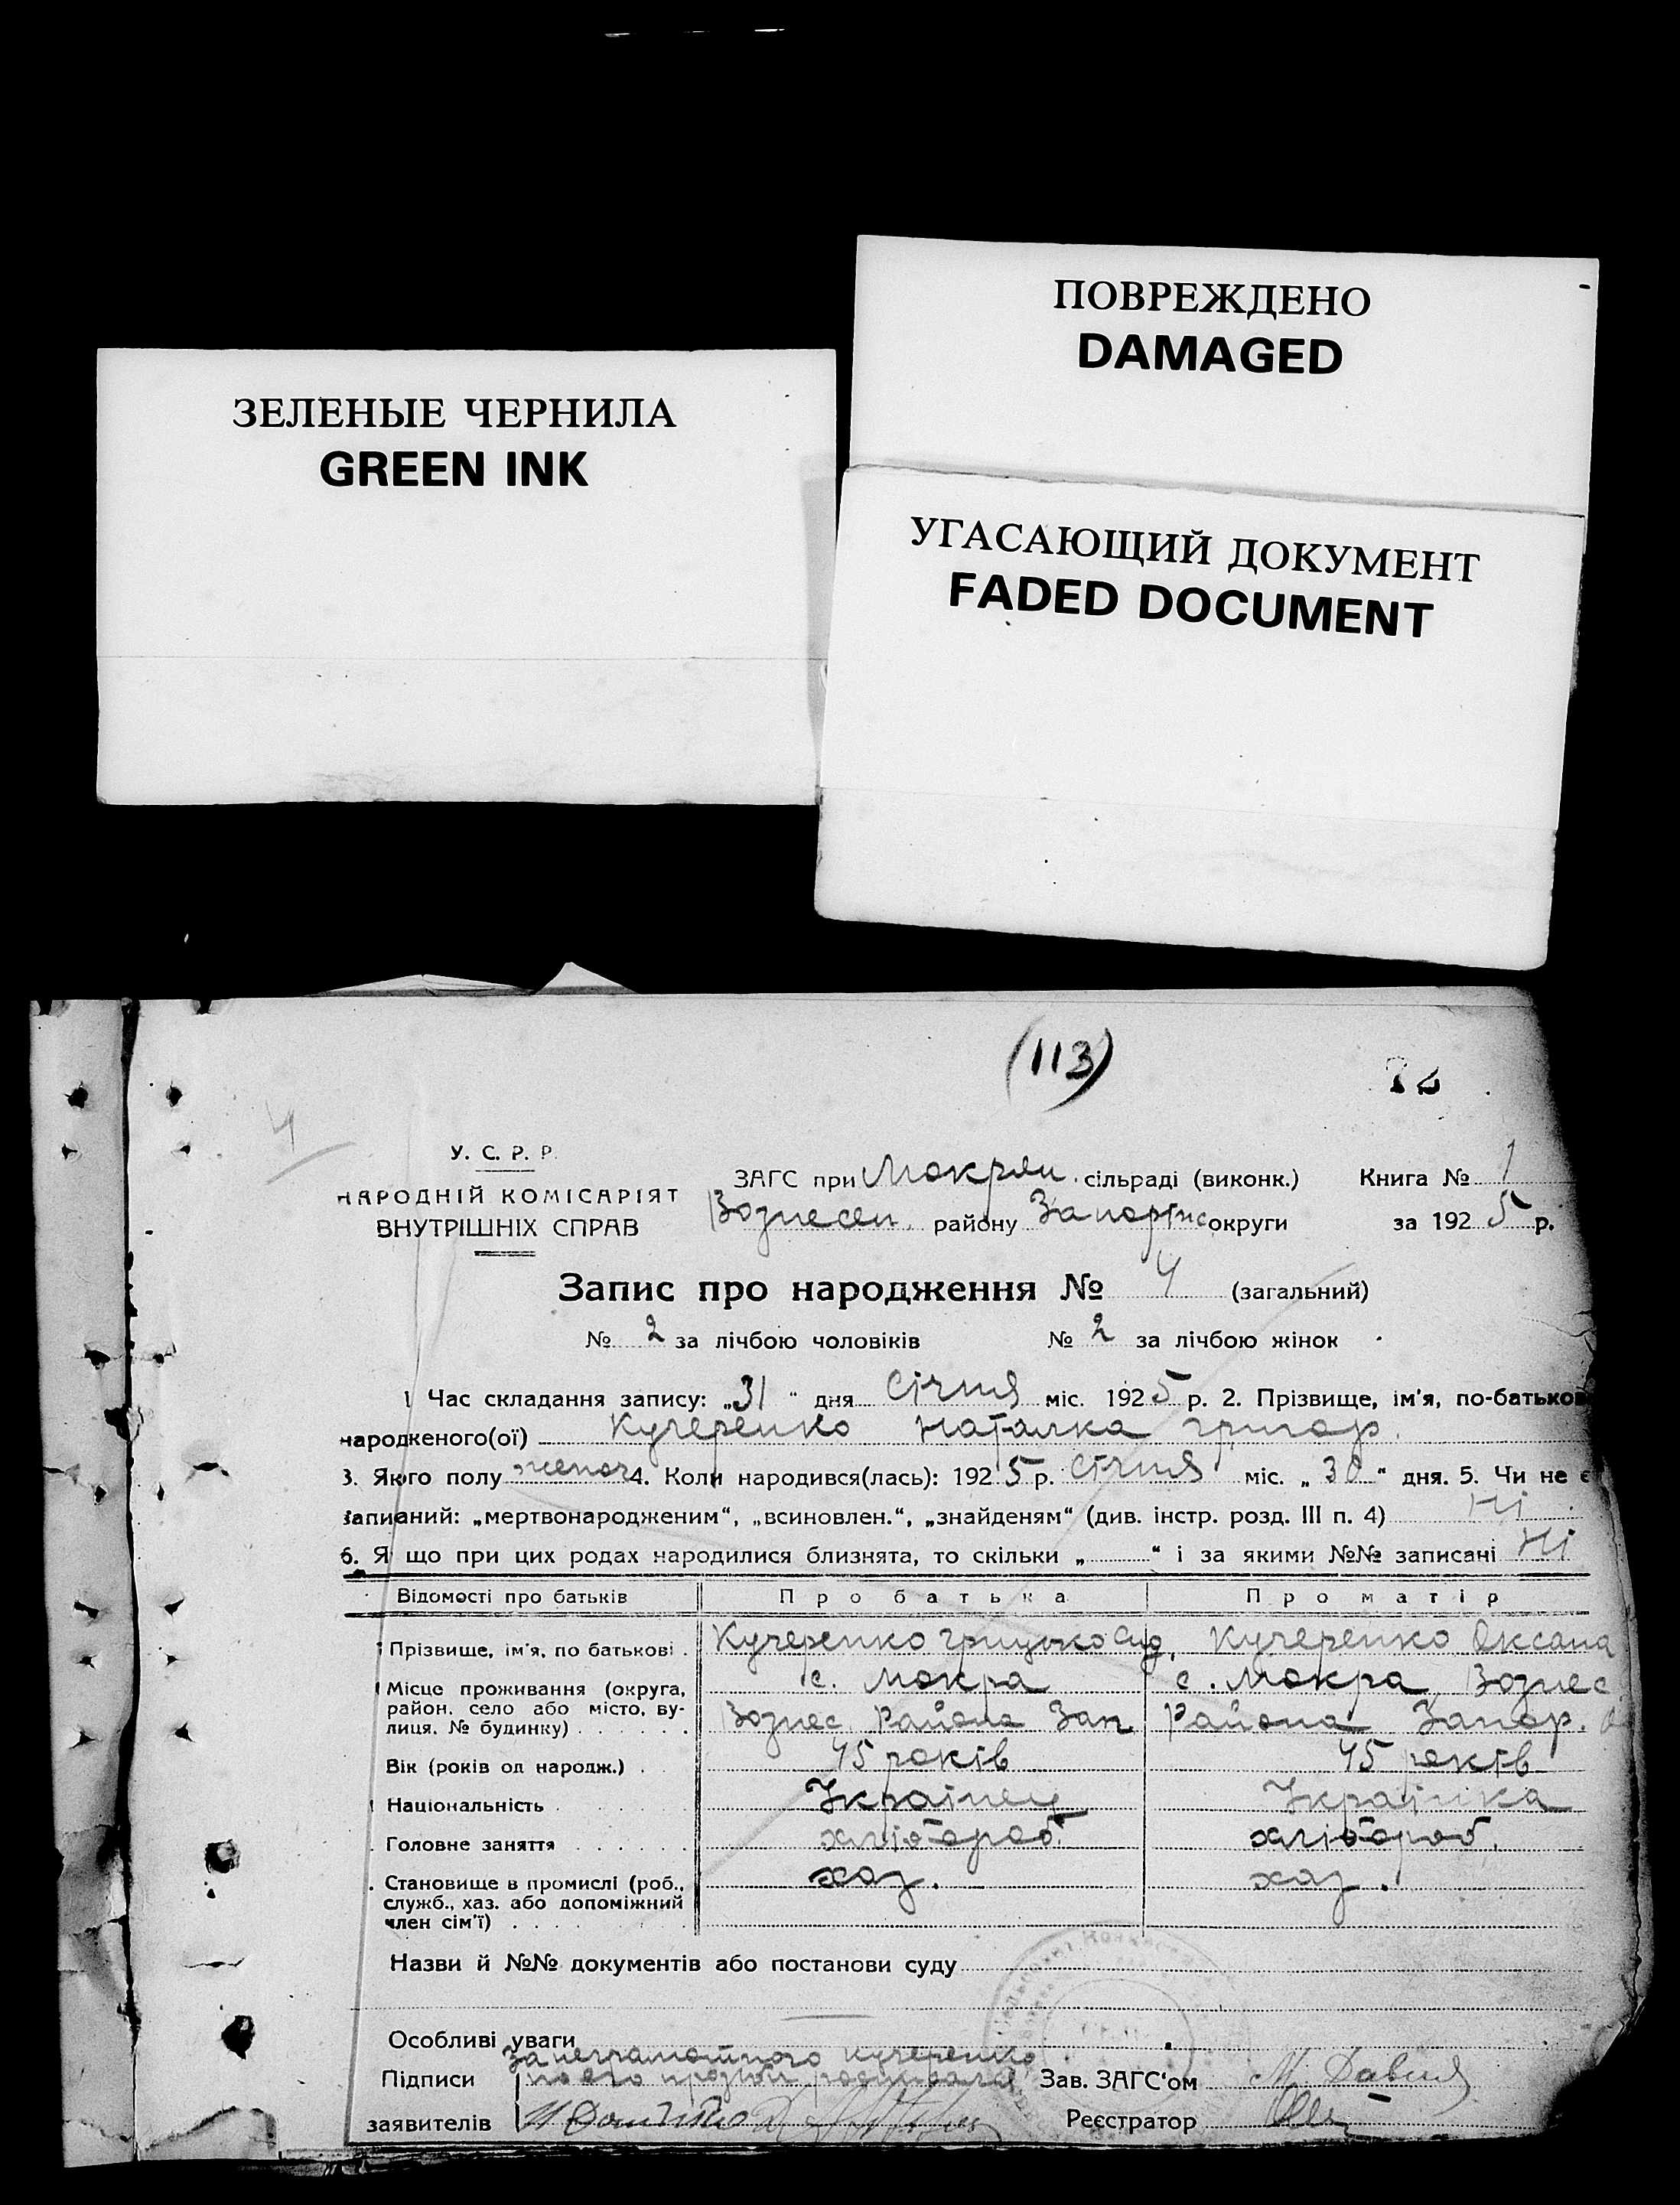 ПОВРЕЖДЕНО
DAMAGED
ЗЕЛЕНЫЕ ЧЕРНИЛА
GREEN INK
УГАСАЮЩИЙ ДОКУМЕНТ
FADED DOCUMENT
(113)
4
У. С. Р. Р.
НАРОДНІЙ КОМІСАРІЯТ
ВНУТРІШНІХ СПРАВ
ЗАГС при Мокрян. сільраді (виконк.) Книга № 1
Вознесен. району Запоріж округи за 1925 р.
Запис про народження № 4 (загальний)
№ 2 за лічбою чоловіків № 2 за лічбою жінок
1 Час складання запису: „31" дня Січня міс. 1925 р. 2. Прізвище, ім'я, по-батькові
народженого(ої) Кучеренко Наталка Григор.
3. Якого полу жіноч 4. Коли народився(лась): 1925 р. Січня міс. „30" дня. 5. Чи не є
записаний: „мертвонародженим", „всиновлен.", „знайденям" (див. інстр. розд. III п. 4) Ні
6. Я що при цих родах народилися близнята, то скільки „ " і за якими №№ записані Ні
Відомості про батьків Про батька Про матір
Прізвище, ім'я, по батькові . Кучеренко Грицько Сид. Кучеренко Оксана
Місце проживання (округа, с. Мокра с. Мокра, Вознес
район, село або місто, ву-
лиця, № будинку) . . . . . . Вознес. Района Зап Района Запор.
Вік (років од народж.) . 45 років 45 років
Національність Українец Українка
Головне заняття . . . . . . хлібороб. хлібороб.
Становище в промислі (роб., хаз. хаз.
служб., хаз. або допоміжний
член сім'ї) . . . .
Назви й №№ документів або постанови суду
Особливі уваги
За неграмотного Кучеренко
Підписи по его прозьби росписался Зав. ЗАГС'ом
заявителів Реєстратор